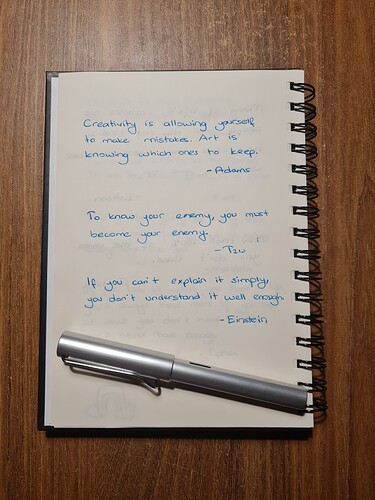 Creativity is allowing yourself
to make mistakes. Art is
knowing which ones to keep.
- Adams
To know your enemy, you must
become your enemy.
- Tzu
If you can't explain it simply,
you don't understand it well enough
- Einstein